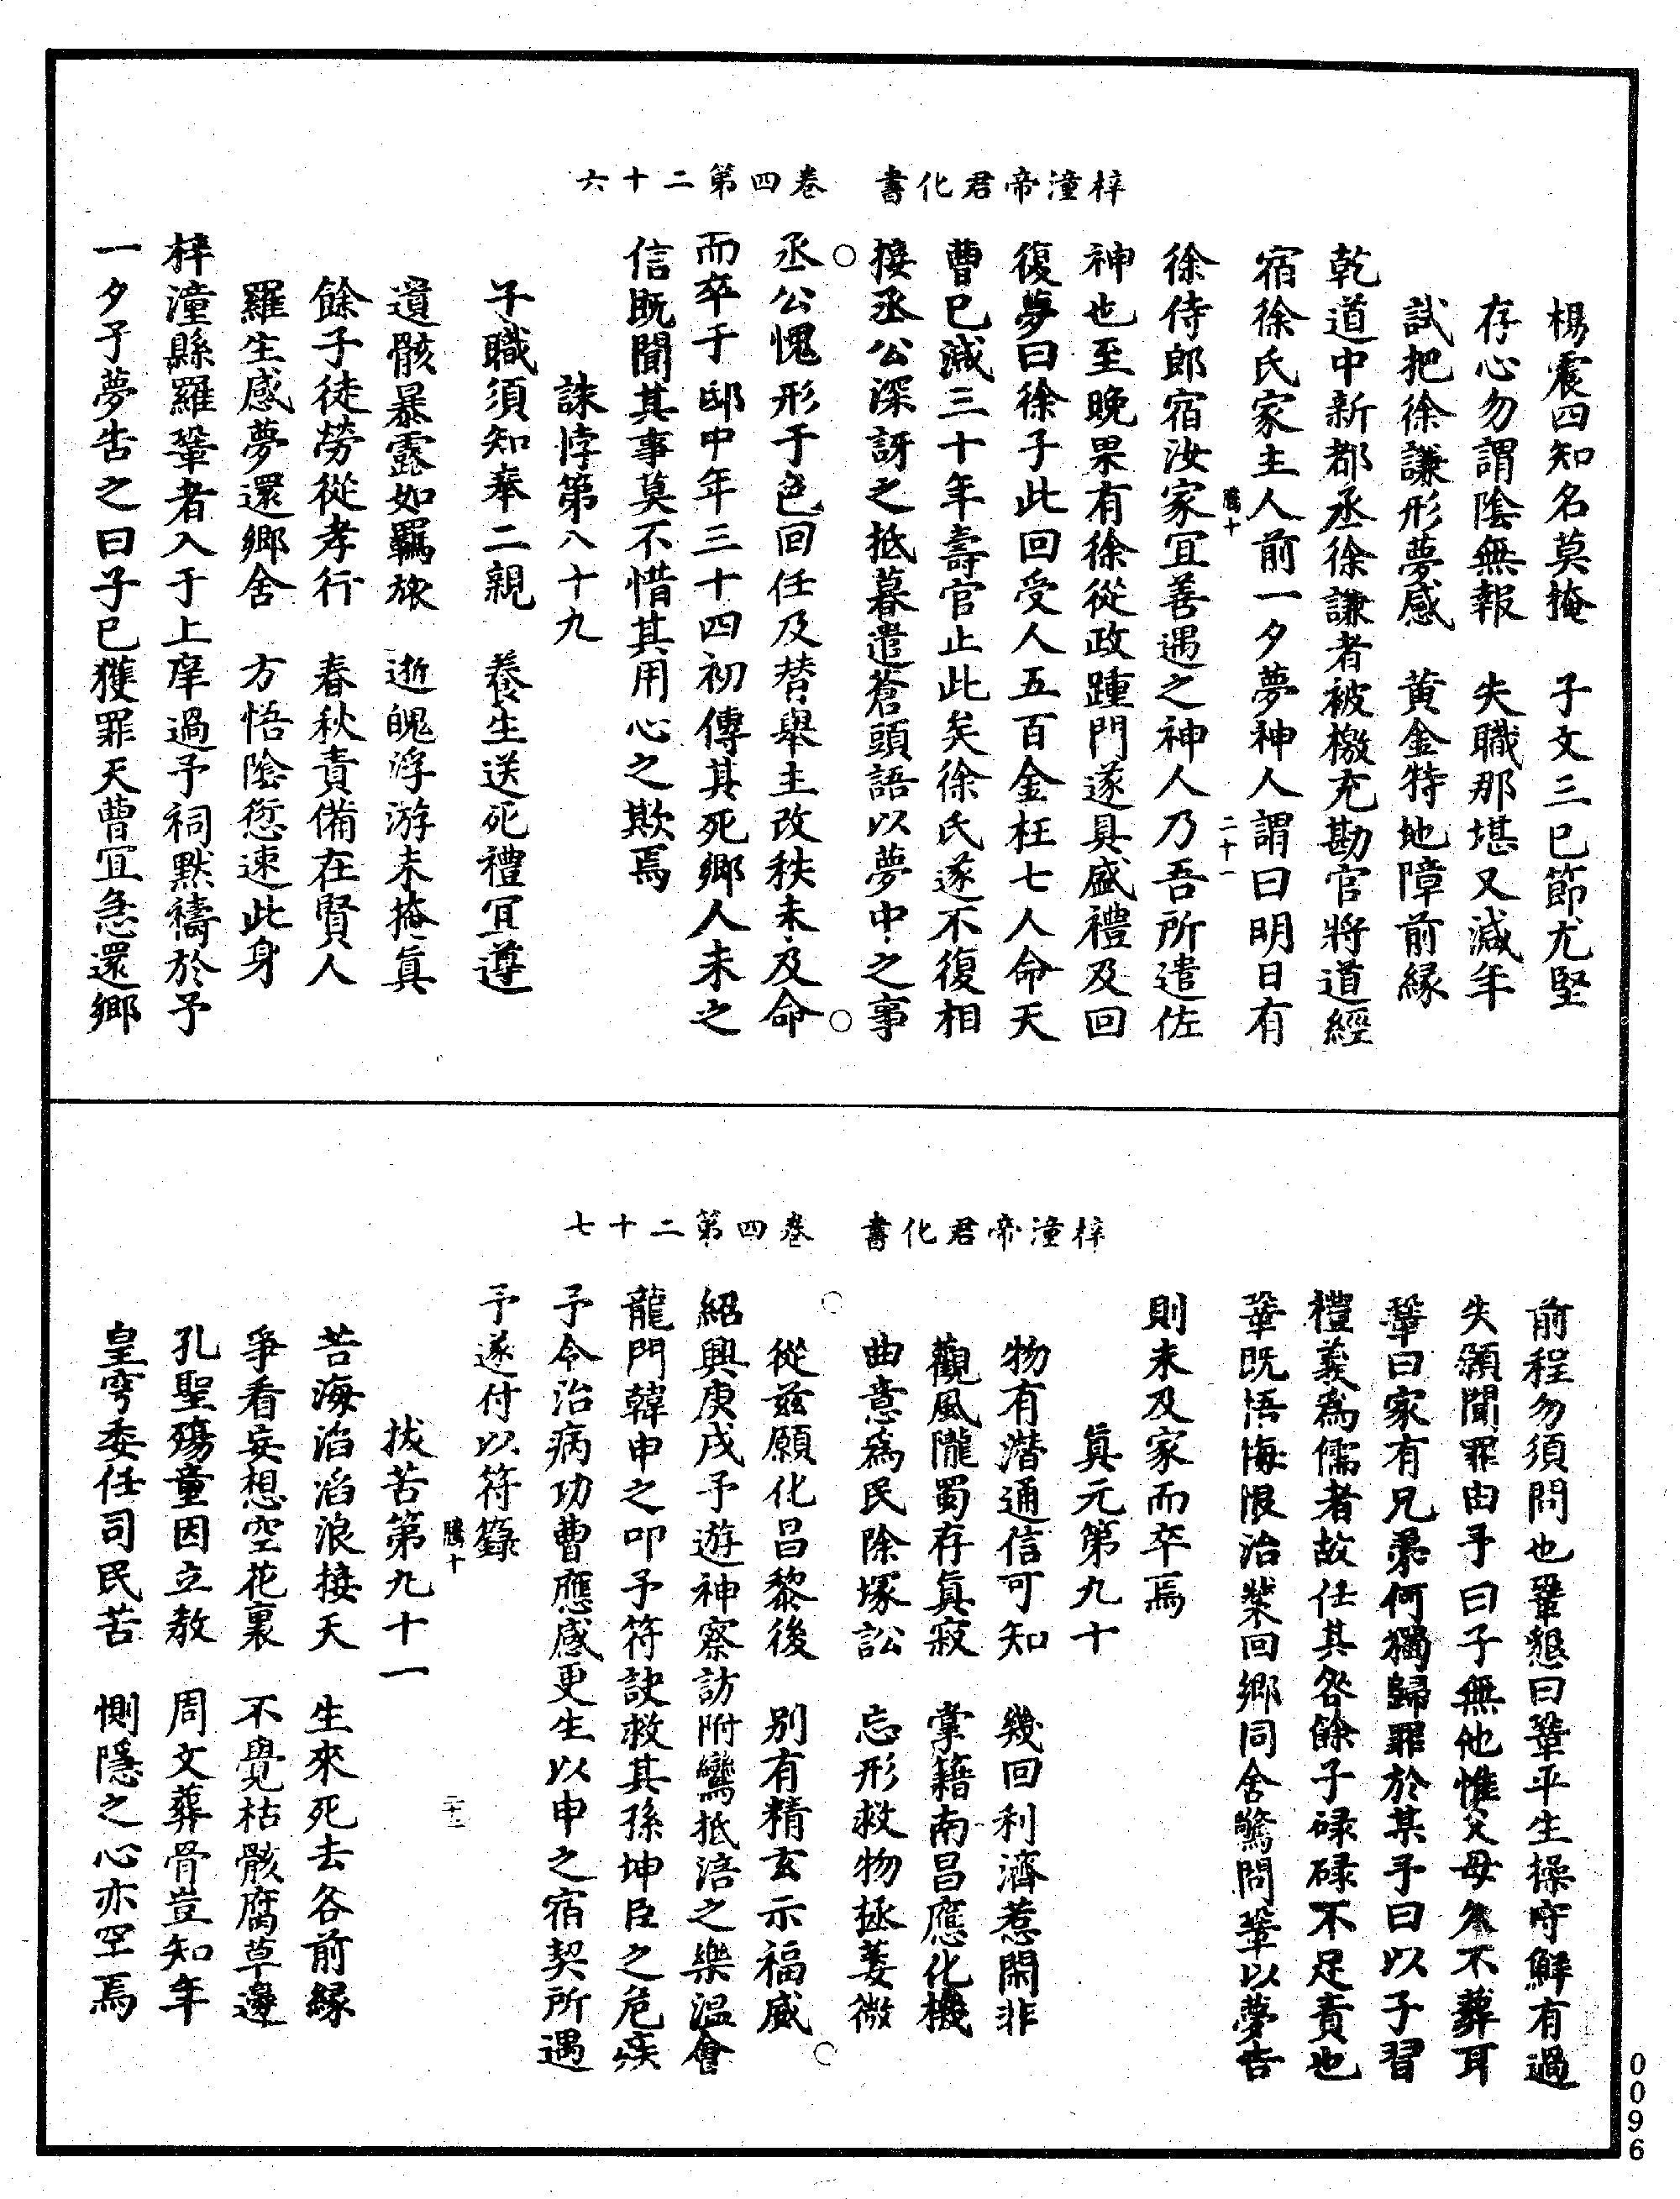 梓潼帝君化書　卷四第二十六
楊震四知名莫掩　子文三已節尤堅
存心勿謂陰無報　失職那堪又減年
試把徐謙形夢感　黃金特地障前緣
乾道中新都丞徐謙者被檄充勘官將道經
宿徐氏家主人前一夕夢神人謂曰明日有
騰十　二十一
徐侍郎宿汝家宜善遇之神人乃吾所遣佐
神也至晚果有徐從政踵門遂具盛禮及回
復夢曰徐子此回受人五百金枉七人命天
曹已減三十年壽官止此矣徐氏遂不復相
接丞公深訝之抵暮遣蒼頭語以夢中之事
丞公愧形于色回任及替舉主改秩未及命
而卒于邸中年三十四初傳其死鄉人未之
信既聞其事莫不惜其用心之欺焉
誅悖第八十九
子職須知奉二親　養生送死禮宜遵
遺骸暴露如羈旅　逝魄浮游未掩真
餘子徒勞從孝行　春秋責備在賢人
羅生感夢還鄉舍　方悟陰愆速此身
梓潼縣羅鞏者入于上庠過予祠默禱於予
一夕予夢告之曰子已獲罪天曹宜急還鄉
梓潼帝君化書　卷四第二十七
前程勿須問也鞏懇曰鞏平生操守鮮有過
失願聞罪由予曰子無他惟父母久不葬耳
鞏曰家有兄弟何獨歸罪於某予曰以子習
禮義為儒者故任其咎餘子碌碌不足責也
鞏既悟悔恨治裝回鄉同舍驚問鞏以夢告
則未及家而卒焉
真元第九十
物有潛通信可知　幾回利濟惹閑非
觀風隴蜀存真寂　掌籍南昌應化機
曲意為民除塚訟　忘形救物拯萎微
從茲願化昌黎後　別有精玄示福威
紹興庚戌予遊神察訪附鸞抵涪之樂溫會
龍門韓申之叩予符訣救其孫坤臣之危疾
予令治病功曹應感更生以申之宿契所遇
予遂付以符籙
騰十　二十二
拔苦第九十一
苦海滔滔浪接天　生來死去各前緣
爭看妄想空花裏　不覺枯骸腐草邊
孔聖殤童因立教　周文葬骨豈知年
皇穹委任司民苦　惻隱之心亦罕焉
0096